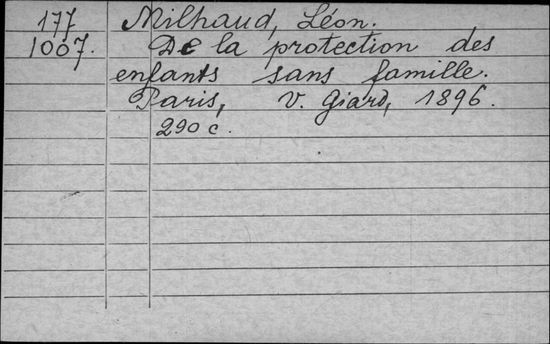 177 Milhaud, Léon.
1007. De la protection des
enfants sans famille.
Paris, V. Giard, 1896.
290 c.